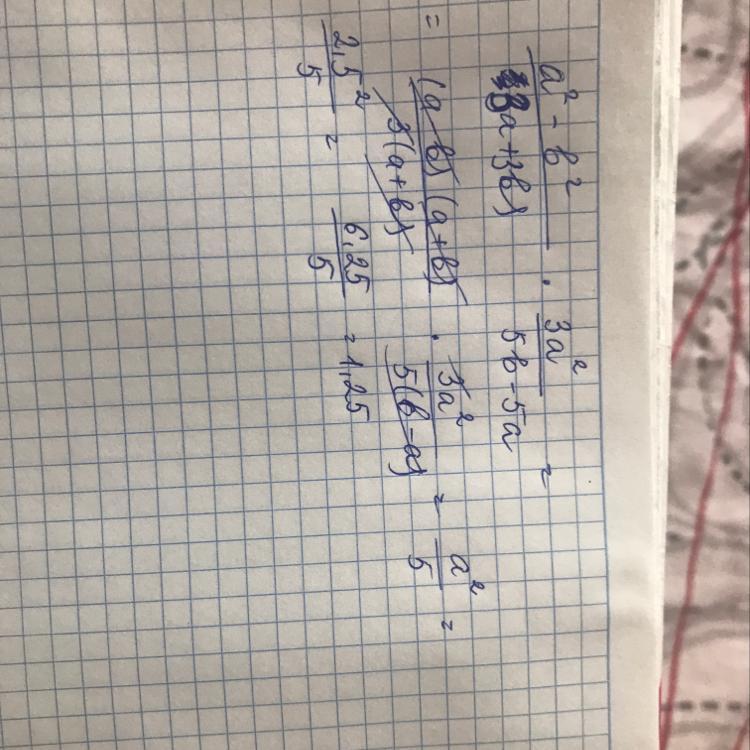 a² - b² / 3a + 3b · 3a² / 5b - 5a =
= (a - b)(a + b) / 3(a + b) · 3a² / 5(b - a) = a² / 5 =
2,5² / 5 = 6,25 / 5 = 1,25